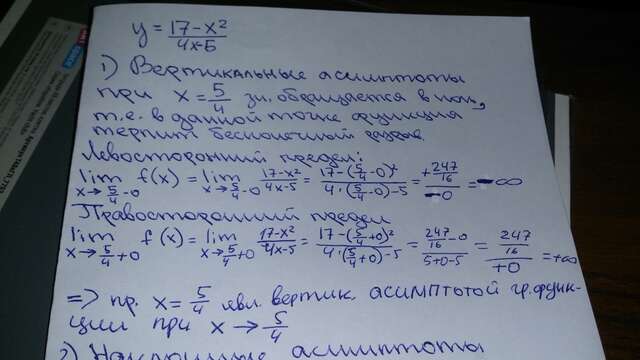 y = (17-x²)/(4x-5)
1) Вертикальные асимптоты
при x = 5/4 зн. обращается в ноль,
т.е. в данной точке функция
терпит бесконечный разрыв.
Левосторонний предел:
lim x→5/4-0 f(x) = lim x→5/4-0 (17-x²)/(4x-5) = (17-(5/4-0)²)/(4·(5/4-0)-5) = (+247/16)/(-0) = -∞
Правосторонний предел
lim x→5/4+0 f(x) = lim x→5/4+0 (17-x²)/(4x-5) = (17-(5/4+0)²)/(4·(5/4+0)-5) = (247/16-0)/(5+0-5) = (247/16)/(+0) = +∞
=> пр. x = 5/4 явл. вертик. асимптотой гр. функ-
ции при x → 5/4
2) Наклонные асимптоты